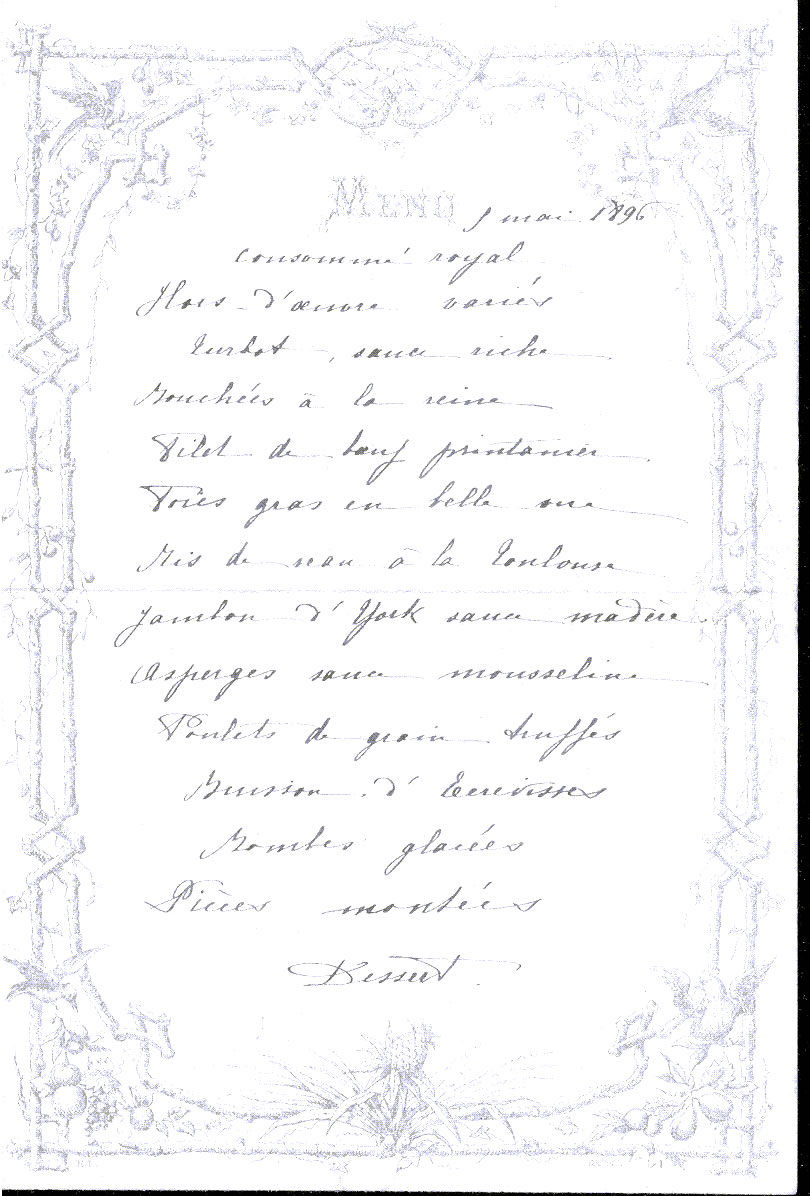 MENU
mai 1896
consommé royal
Hors-d'œuvre variés
Turbot, sauce riche
Bouchées à la reine
Filet de bœuf printanier
Foies gras en belle vue
Ris de veau à la Toulouse
Jambon d'York sauce madère
Asperges sauce mousseline
Poulets de grain truffés
Buisson d'Ecrevisses
Bombes glacées
Pièces montées
Dessert.